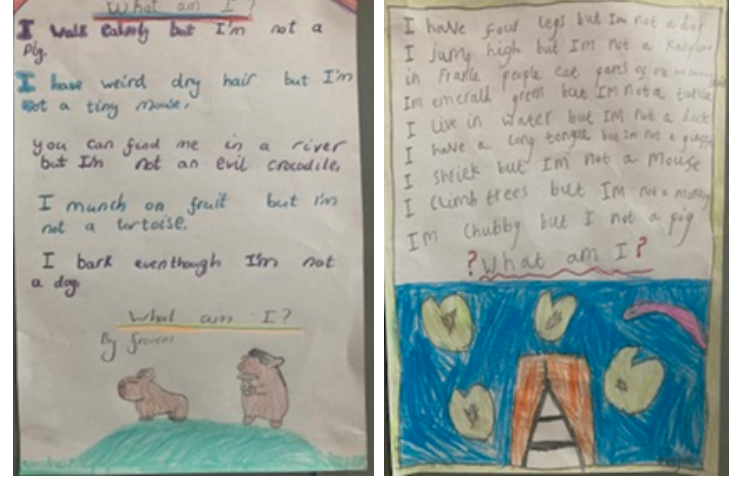 What am I?
I walk calmly but I'm not a
pig.
I have weird dry hair but I'm
not a tiny mouse.
you can find me in a river
but I'm not an evil crocodile.
I munch on fruit but I'm
not a tortoise.
I bark eventhough I'm not
a dog
What am I?
By
I have four legs but Im not a dog
I jump high but Im not a
in France people eat parts of me
Im emerald green but Im not a turtle
I live in water but Im not a duck
I have a long tongue but Im not a giraffe
I shriek but Im not a mouse
I climb trees but Im not a monkey
Im chubby but I not a pig
?What am I?